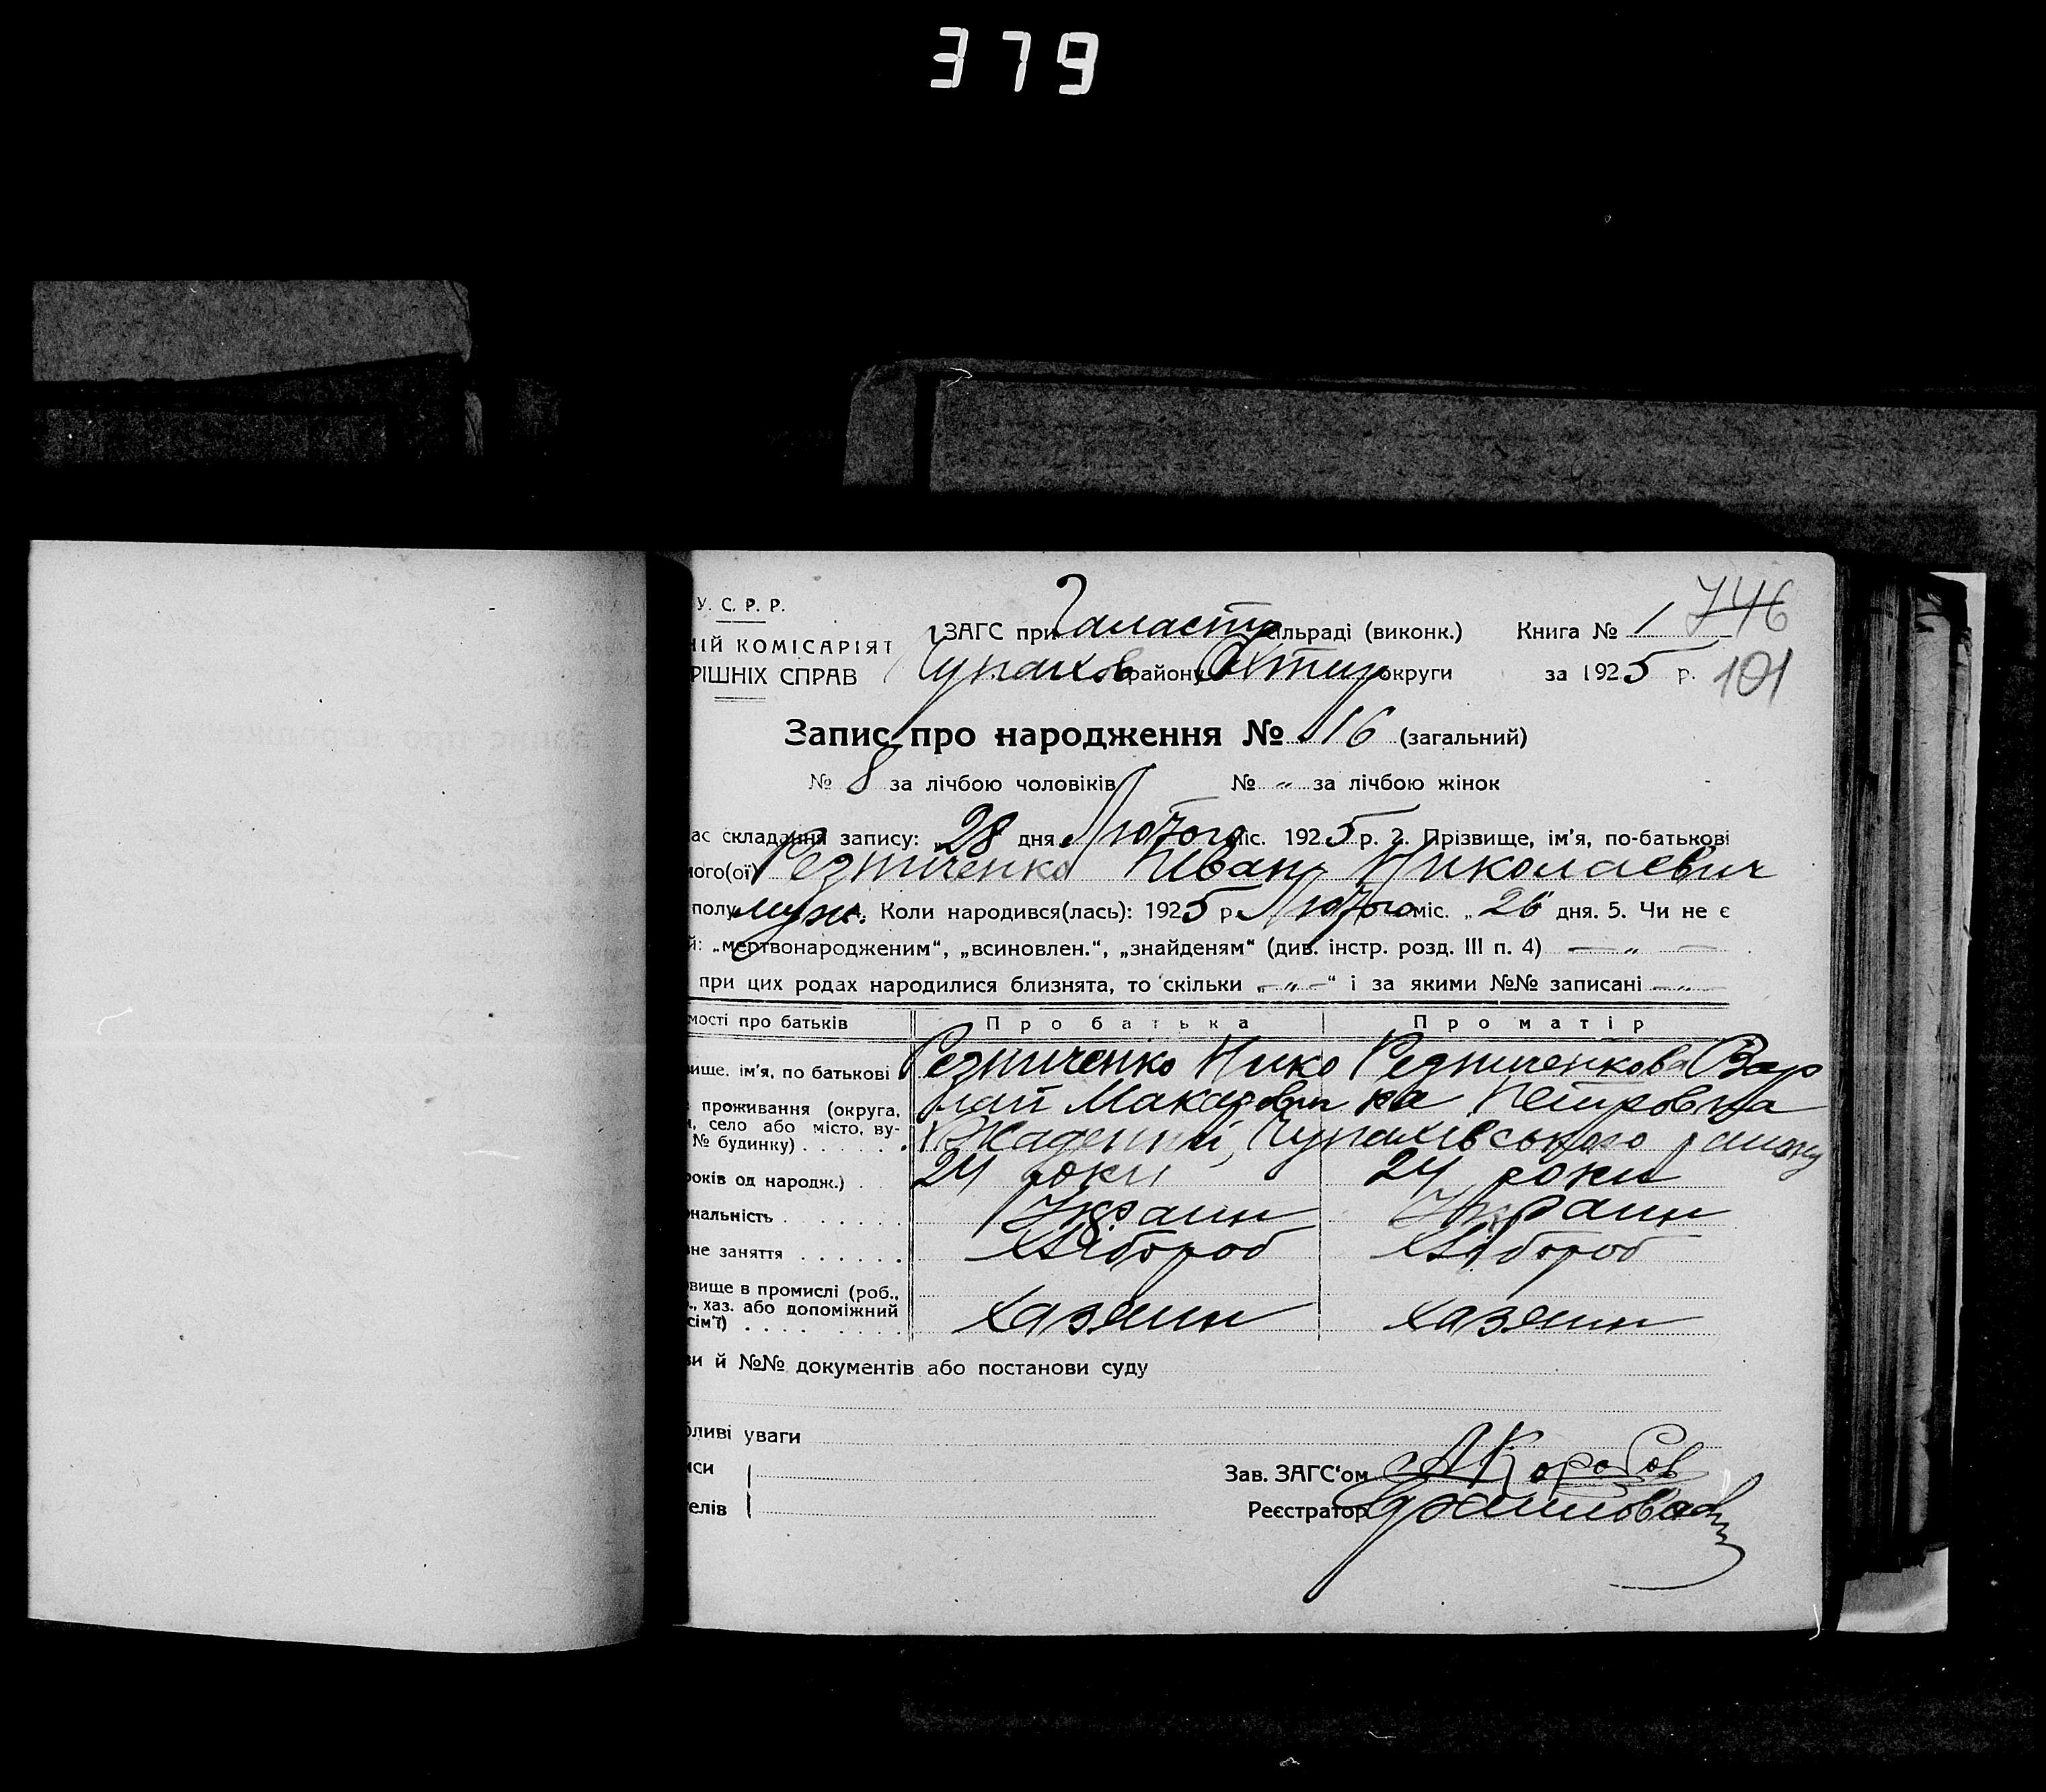 379
У. С. Р. Р.
746
ЗАГС при Галастр сільраді (виконк.) Книга № 1
НІЙ КОМІСАРІЯТ
РІШНІХ СПРАВ Чупахов району Охтир округи за 1925 р. 101
Запис про народження № 16 (загальний)
№ 8 за лічбою чоловіків № „ за лічбою жінок
ас складання запису: „28 дня Лютого міс. 1925 р. 2. Прізвище, ім'я, по-батькові
ого(ої) Резниченко Иван Николаевич
полу муж. 4. Коли народився(лась): 1925 р. Лютого міс. „26 дня. 5. Чи не є
й: „мертвонародженим“, „всиновлен.“, „знайденям“ (див. інстр. розд. III п. 4) — „ —
при цих родах народилися близнята, то скільки „— „ —“ і за якими №№ записані — „ —
мості про батьків Про батька Про матір
вище, ім'я, по батькові Резниченко Нико Резниченкова Вар
лай Макарович ка Петровна
проживання (округа,
н, село або місто, ву-
№ будинку) Чупахівського району
років од народж.) 24 роки 24 роки
ональність Украин Украин
не заняття Хлібороб Хлібороб
вище в промислі (роб.,
., хаз. або допоміжний
сім'ї) Хазяин хазяин
ви й №№ документів або постанови суду
бливі уваги
иси
Зав. ЗАГС'ом
елів
Реєстратор